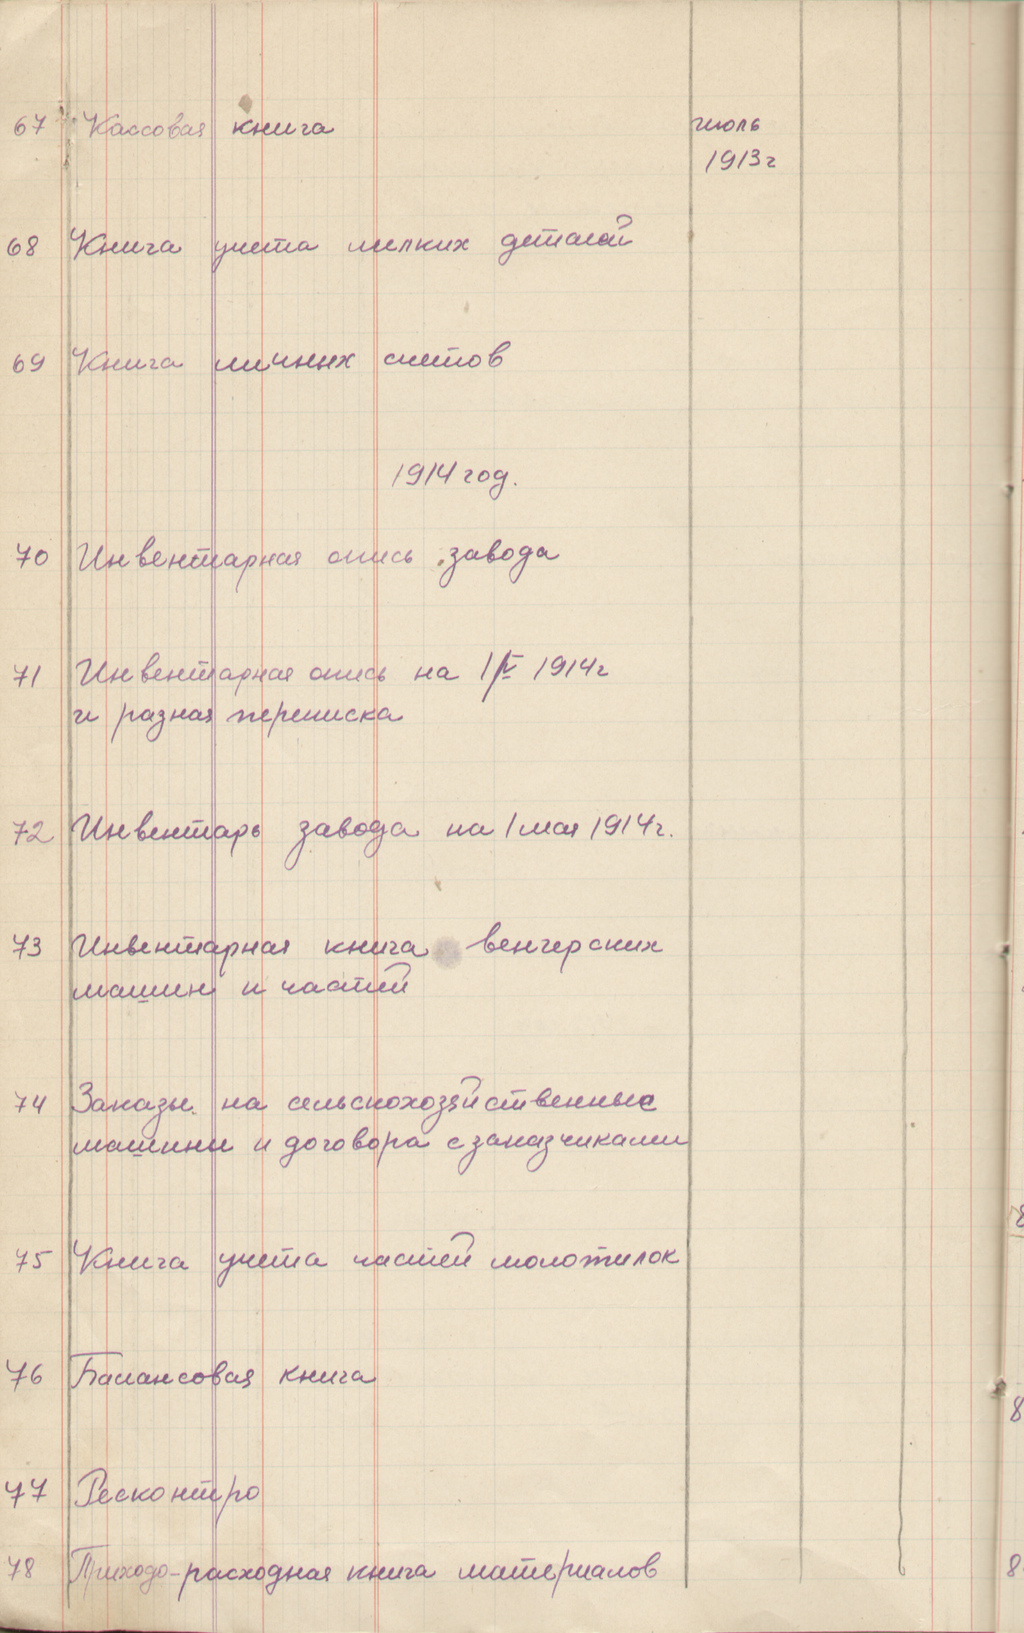 67 Кассовая книга июль
1913г
68 Книга учета мелких деталей
69 Книга личных счетов
1914 год.
70 Инвентарная опись завода
71 Инвентарная опись на 1/V 1914г
и разная переписка
72 Инвентарь завода на 1 мая 1914г.
73 Инвентарная книга венгерских
машин и частей
74 Заказы на сельскохозяйственные
машины и договора с заказчиками
75 Книга учета частей молотилок
76 Балансовая книга
77 Ресконтро
78 Приходо-расходная книга материалов